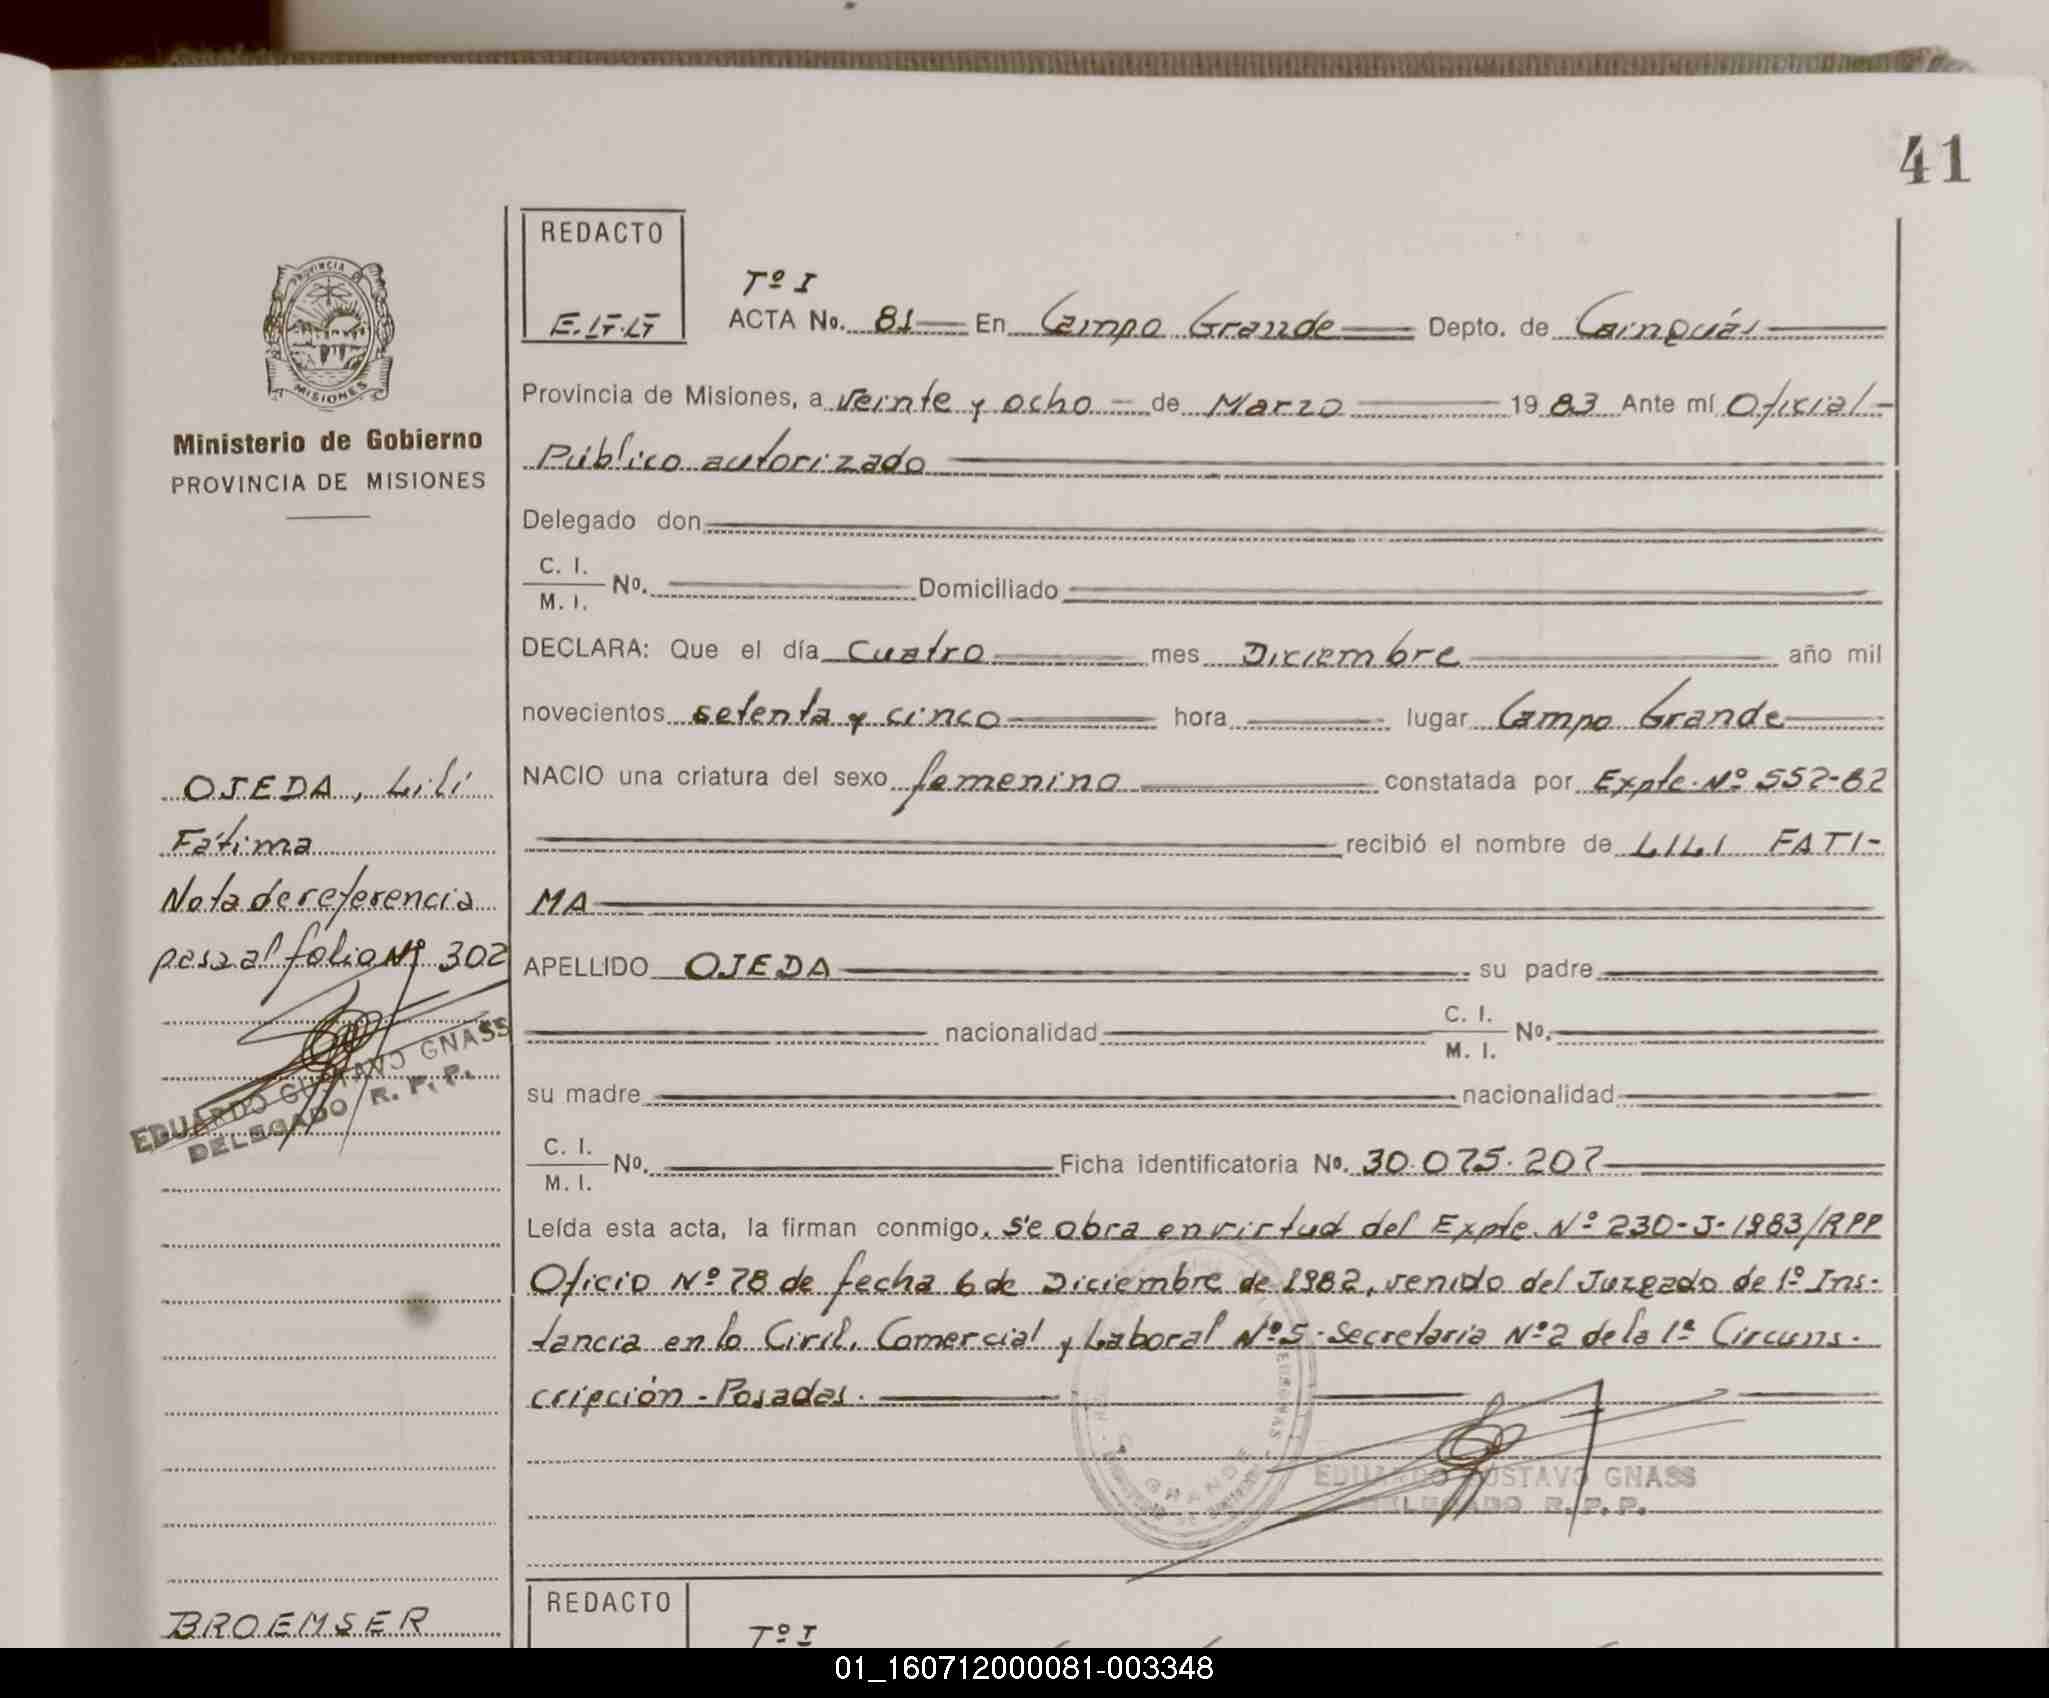 41
REDACTO
Tº I
ACTA No. 81 En Campo Grande Depto. de Cainguás
PROVINCIA
MISIONES
Provincia de Misiones, a veinte y ocho de Marzo 1983 Ante mí Oficial
Público autorizado
Ministerio de Gobierno
PROVINCIA DE MISIONES
Delegado don
C. I.
M. I.
No. Domiciliado
DECLARA: Que el día Cuatro mes Diciembre año mil
novecientos setenta y cinco hora lugar Campo Grande
NACIO una criatura del sexo femenino constatada por Expte. Nº 552-82
recibió el nombre de LILI FATI-
MA
APELLIDO OJEDA su padre
nacionalidad C. I. No.
M. I.
su madre nacionalidad
C. I.
M. I.
No. Ficha identificatoria No. 30.075.207
Leída esta acta, la firman conmigo, Se obra en virtud del Expte. Nº 230-J-1983/RPP
Oficio Nº 78 de fecha 6 de Diciembre de 1982, venido del Juzgado de 1º Ins-
tancia en lo Civil, Comercial y Laboral Nº 5 - Secretaria Nº 2 de la 1ª Circuns-
cripción - Posadas.
OJEDA, Lili
Fátima
Nota de referencia
pasa al folio Nº 302
EDUARDO GUSTAVO GNASS
DELEGADO R. P. P.
GRANDE
EDUARDO GUSTAVO GNASS
DELEGADO R. P. P.
REDACTO
Tº I
BROEMSER
01_160712000081-003348